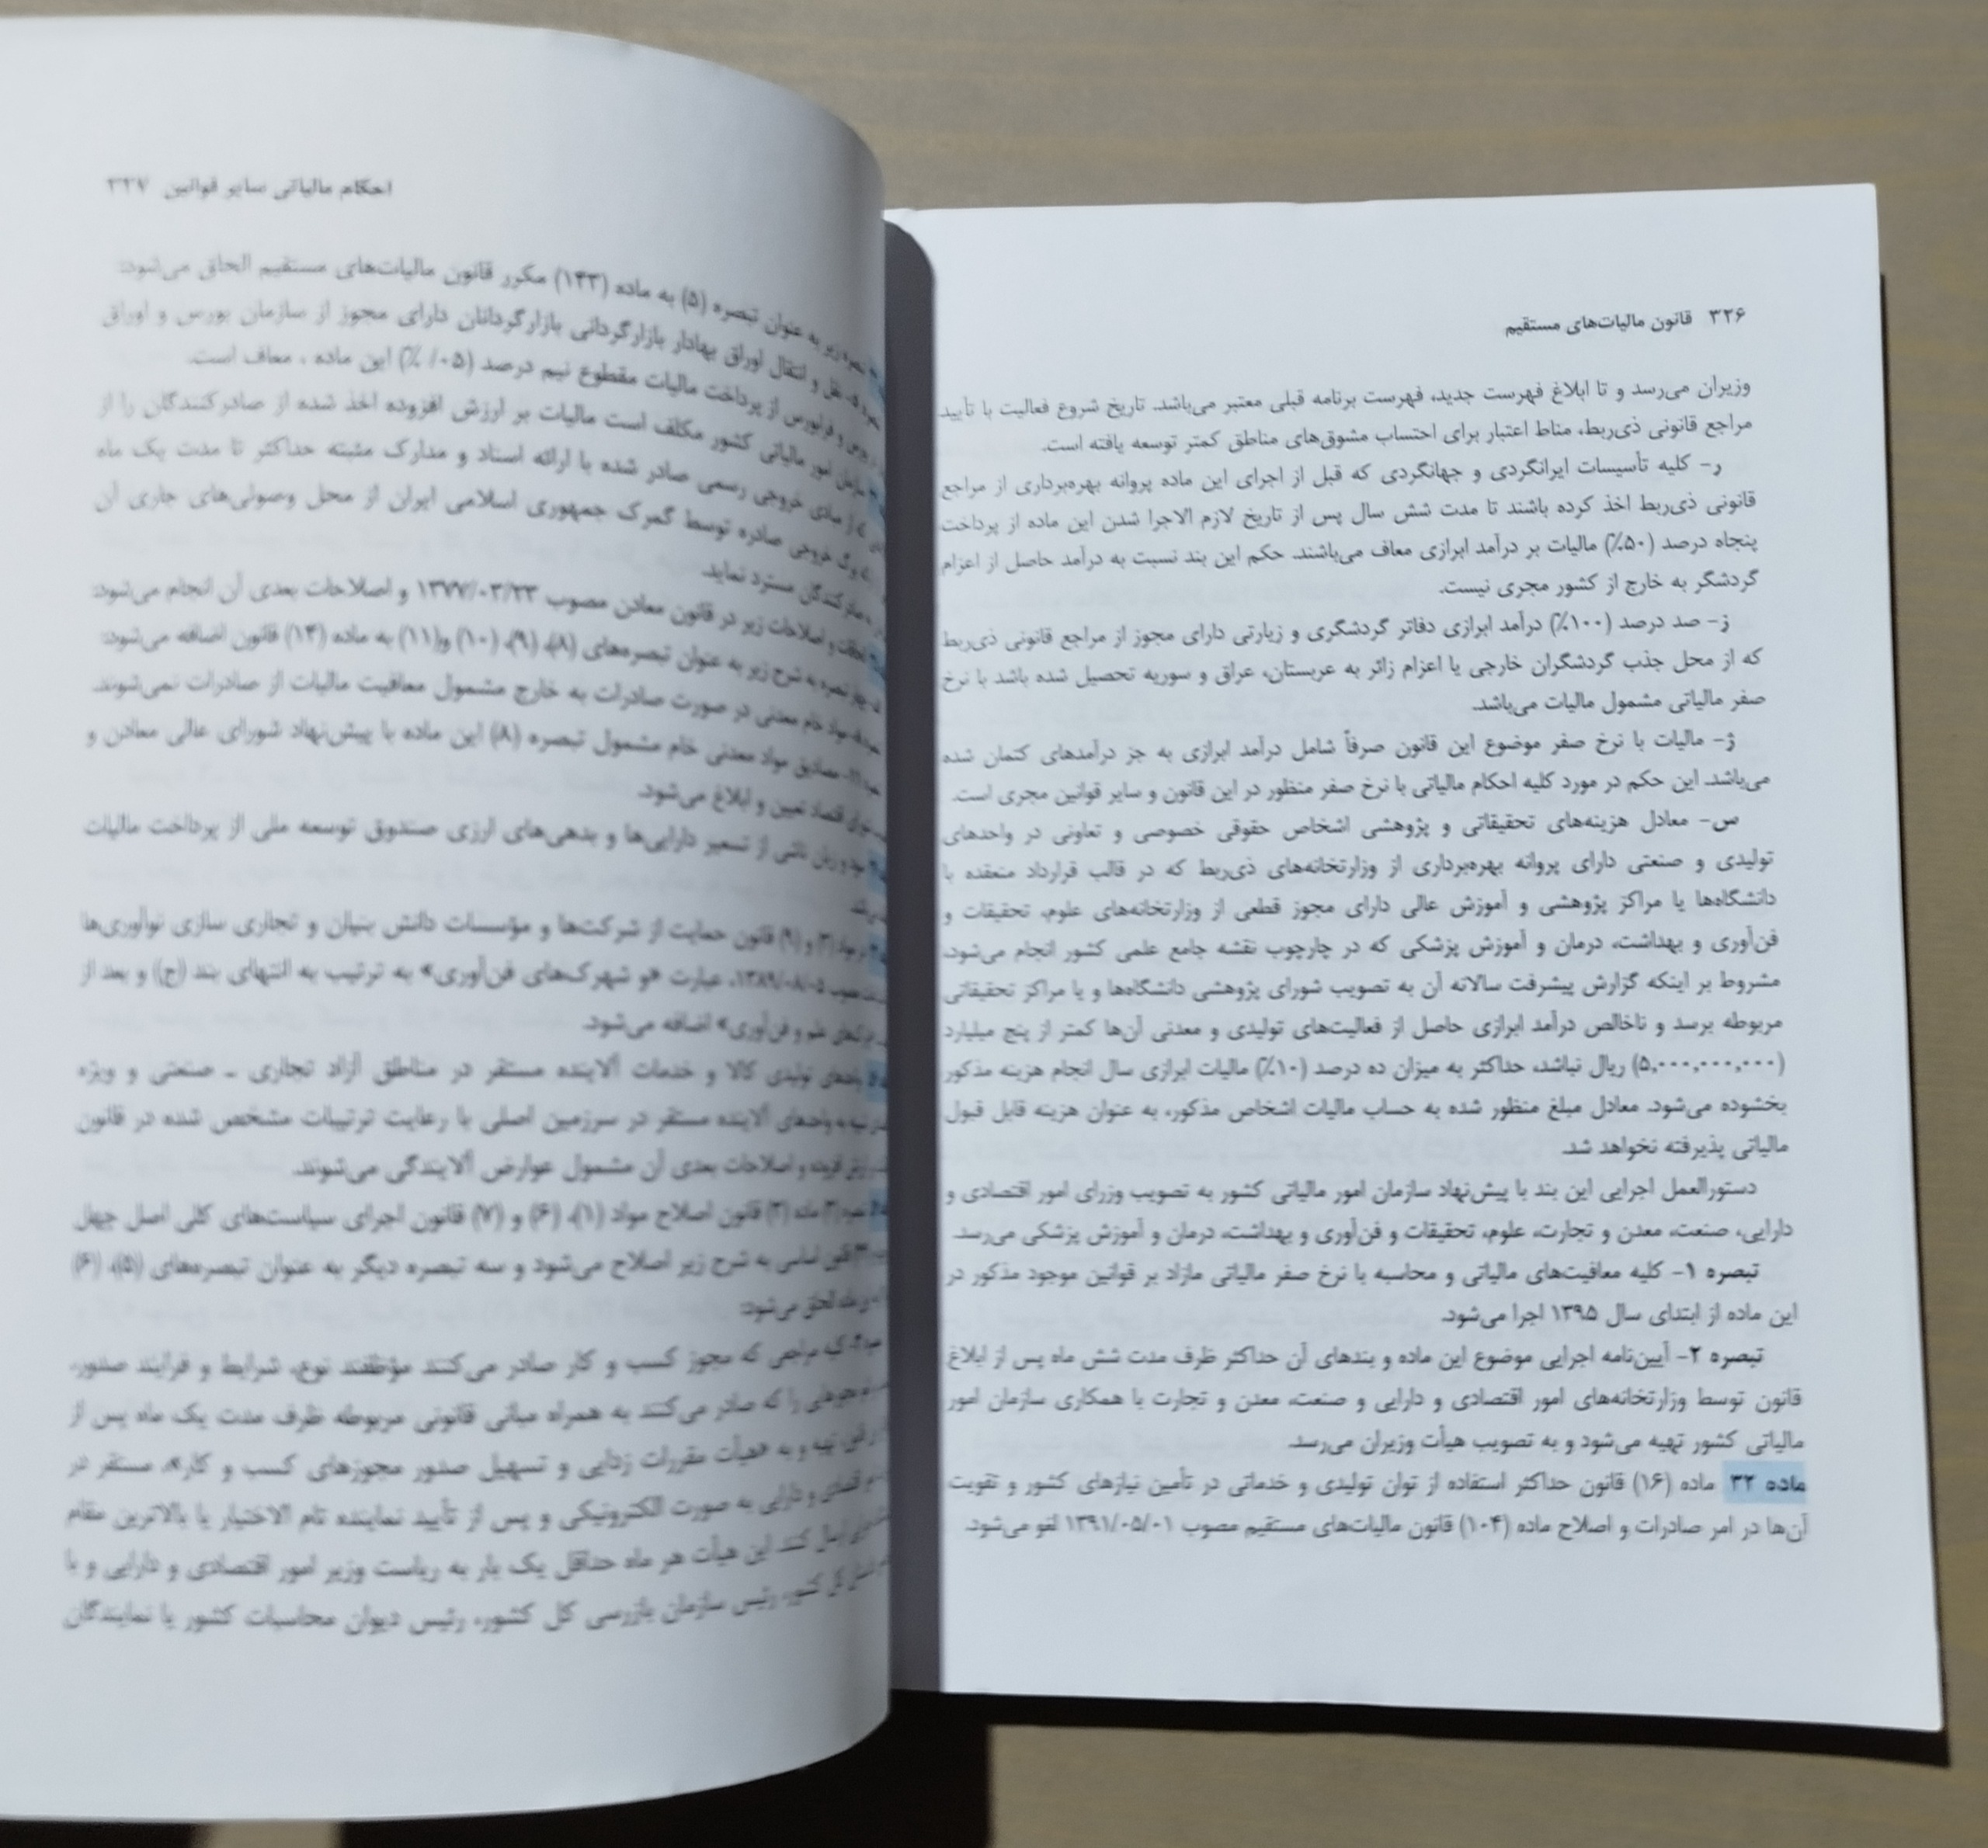 ۳۲۶ قانون مالیات‌های مستقیم
وزیران می‌رسد و تا ابلاغ فهرست جدید، فهرست برنامه قبلی معتبر می‌باشد. تاریخ شروع فعالیت با تأیید
مراجع قانونی ذی‌ربط، مناط اعتبار برای احتساب مشوق‌های مناطق کمتر توسعه یافته است.
ر- کلیه تأسیسات ایرانگردی و جهانگردی که قبل از اجرای این ماده پروانه بهره‌برداری از مراجع
قانونی ذی‌ربط اخذ کرده باشند تا مدت شش سال پس از تاریخ لازم الاجرا شدن این ماده از پرداخت
پنجاه درصد (۵۰٪) مالیات بر درآمد ابرازی معاف می‌باشند. حکم این بند نسبت به درآمد حاصل از اعزام
گردشگر به خارج از کشور مجری نیست.
ز- صد درصد (۱۰۰٪) درآمد ابرازی دفاتر گردشگری و زیارتی دارای مجوز از مراجع قانونی ذی‌ربط
که از محل جذب گردشگران خارجی یا اعزام زائر به عربستان، عراق و سوریه تحصیل شده باشد با نرخ
صفر مالیاتی مشمول مالیات می‌باشد.
ژ- مالیات با نرخ صفر موضوع این قانون صرفاً شامل درآمد ابرازی به جز درآمدهای کتمان شده
می‌باشد. این حکم در مورد کلیه احکام مالیاتی با نرخ صفر منظور در این قانون و سایر قوانین مجری است.
س- معادل هزینه‌های تحقیقاتی و پژوهشی اشخاص حقوقی خصوصی و تعاونی در واحدهای
تولیدی و صنعتی دارای پروانه بهره‌برداری از وزارتخانه‌های ذی‌ربط که در قالب قرارداد منعقده با
دانشگاه‌ها یا مراکز پژوهشی و آموزش عالی دارای مجوز قطعی از وزارتخانه‌های علوم، تحقیقات و
فن‌آوری و بهداشت، درمان و آموزش پزشکی که در چارچوب نقشه جامع علمی کشور انجام می‌شود،
مشروط بر اینکه گزارش پیشرفت سالانه آن به تصویب شورای پژوهشی دانشگاه‌ها و یا مراکز تحقیقاتی
مربوطه برسد و ناخالص درآمد ابرازی حاصل از فعالیت‌های تولیدی و معدنی آن‌ها کمتر از پنج میلیارد
(۵,۰۰۰,۰۰۰,۰۰۰) ریال نباشد، حداکثر به میزان ده درصد (۱۰٪) مالیات ابرازی سال انجام هزینه مذکور
بخشوده می‌شود. معادل مبلغ منظور شده به حساب مالیات اشخاص مذکور، به عنوان هزینه قابل قبول
مالیاتی پذیرفته نخواهد شد.
دستورالعمل اجرایی این بند با پیش‌نهاد سازمان امور مالیاتی کشور به تصویب وزرای امور اقتصادی و
دارایی، صنعت، معدن و تجارت، علوم، تحقیقات و فن‌آوری و بهداشت، درمان و آموزش پزشکی می‌رسد.
تبصره ۱- کلیه معافیت‌های مالیاتی و محاسبه با نرخ صفر مالیاتی مازاد بر قوانین موجود مذکور در
این ماده از ابتدای سال ۱۳۹۵ اجرا می‌شود.
تبصره ۲- آیین‌نامه اجرایی موضوع این ماده و بندهای آن حداکثر ظرف مدت شش ماه پس از ابلاغ
قانون توسط وزارتخانه‌های امور اقتصادی و دارایی و صنعت، معدن و تجارت با همکاری سازمان امور
مالیاتی کشور تهیه می‌شود و به تصویب هیأت وزیران می‌رسد.
ماده ۳۲ ماده (۱۶) قانون حداکثر استفاده از توان تولیدی و خدماتی در تأمین نیازهای کشور و تقویت
آن‌ها در امر صادرات و اصلاح ماده (۱۰۴) قانون مالیات‌های مستقیم مصوب ۱۳۹۱/۰۵/۰۱ لغو می‌شود.
احکام مالیاتی سایر قوانین ۳۲۷
زیر به عنوان تبصره (۵) به ماده (۱۴۳) مکرر قانون مالیات‌های مستقیم الحاق می‌شود:
نقل و انتقال اوراق بهادار بازارگردانی بازارگردانان دارای مجوز از سازمان بورس و اوراق
بورس و فرابورس از پرداخت مالیات مقطوع نیم درصد (۰۵/ ٪) این ماده ، معاف است.
سازمان امور مالیاتی کشور مکلف است مالیات بر ارزش افزوده اخذ شده از صادرکنندگان را از
مبادی خروجی رسمی صادر شده با ارائه اسناد و مدارک مثبته حداکثر تا مدت یک ماه
برگ خروجی صادره توسط گمرک جمهوری اسلامی ایران از محل وصولی‌های جاری آن
صادرکنندگان مسترد نماید.
و اصلاحات زیر در قانون معادن مصوب ۱۳۷۷/۰۳/۲۳ و اصلاحات بعدی آن انجام می‌شود:
چهار تبصره به شرح زیر به عنوان تبصره‌های (۸)، (۹)، (۱۰) و(۱۱) به ماده (۱۴) قانون اضافه می‌شود:
مواد خام معدنی در صورت صادرات به خارج مشمول معافیت مالیات از صادرات نمی‌شوند.
مصادیق مواد معدنی خام مشمول تبصره (۸) این ماده با پیش‌نهاد شورای عالی معادن و
اقتصاد تعیین و ابلاغ می‌شود.
سود و زیان ناشی از تسعیر دارایی‌ها و بدهی‌های ارزی صندوق توسعه ملی از پرداخت مالیات
و (۹) قانون حمایت از شرکت‌ها و مؤسسات دانش بنیان و تجاری سازی نوآوری‌ها
مصوب ۱۳۸۹/۰۸/۰۵، عبارت «و شهرک‌های فن‌آوری» به ترتیب به انتهای بند (ج) و بعد از
علم و فن‌آوری» اضافه می‌شود.
تولیدی کالا و خدمات آلاینده مستقر در مناطق آزاد تجاری ـ صنعتی و ویژه
به واحدهای آلاینده مستقر در سرزمین اصلی با رعایت ترتیبات مشخص شده در قانون
ارزش افزوده و اصلاحات بعدی آن مشمول عوارض آلایندگی می‌شوند.
ماده (۳) قانون اصلاح مواد (۱)، (۶) و (۷) قانون اجرای سیاست‌های کلی اصل چهل
قانون اساسی به شرح زیر اصلاح می‌شود و سه تبصره دیگر به عنوان تبصره‌های (۵)، (۶)
الحاق می‌شود:
کلیه مراجعی که مجوز کسب و کار صادر می‌کنند مؤظفند نوع، شرایط و فرآیند صدور،
را که صادر می‌کنند به همراه مبانی قانونی مربوطه ظرف مدت یک ماه پس از
تهیه و به «هیأت مقررات زدایی و تسهیل صدور مجوزهای کسب و کار»، مستقر در
اقتصادی و دارایی به صورت الکترونیکی و پس از تأیید نماینده تام الاختیار یا بالاترین مقام
ارسال کنند. این هیأت هر ماه حداقل یک بار به ریاست وزیر امور اقتصادی و دارایی و با
کل کشور، رئیس سازمان بازرسی کل کشور، رئیس دیوان محاسبات کشور یا نمایندگان